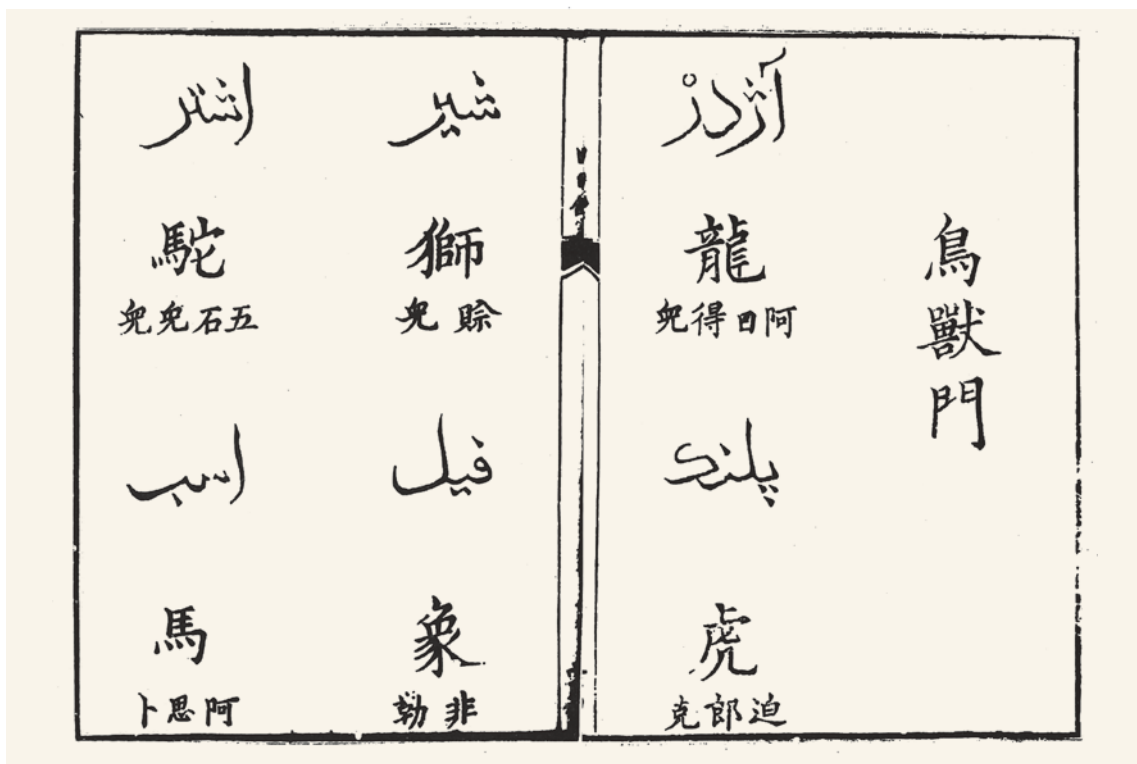 鳥獸門
آژدر
龍
阿日得兒
پلنک
虎
迫郎克
شیر
獅
賒兒
فیل
象
非勒
اشتر
駝
五石兒兒
اسب
馬
阿思卜